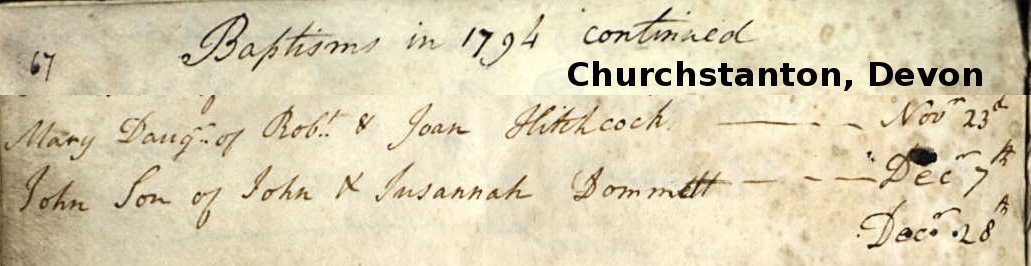 Baptisms in 1794 continued
67
Churchstanton, Devon
Mary Daugr. of Robt. & Joan Hitchcock — – Novr 23d
John Son of John & Susannah Dommett – – — Decr 7th
Decr. 28th